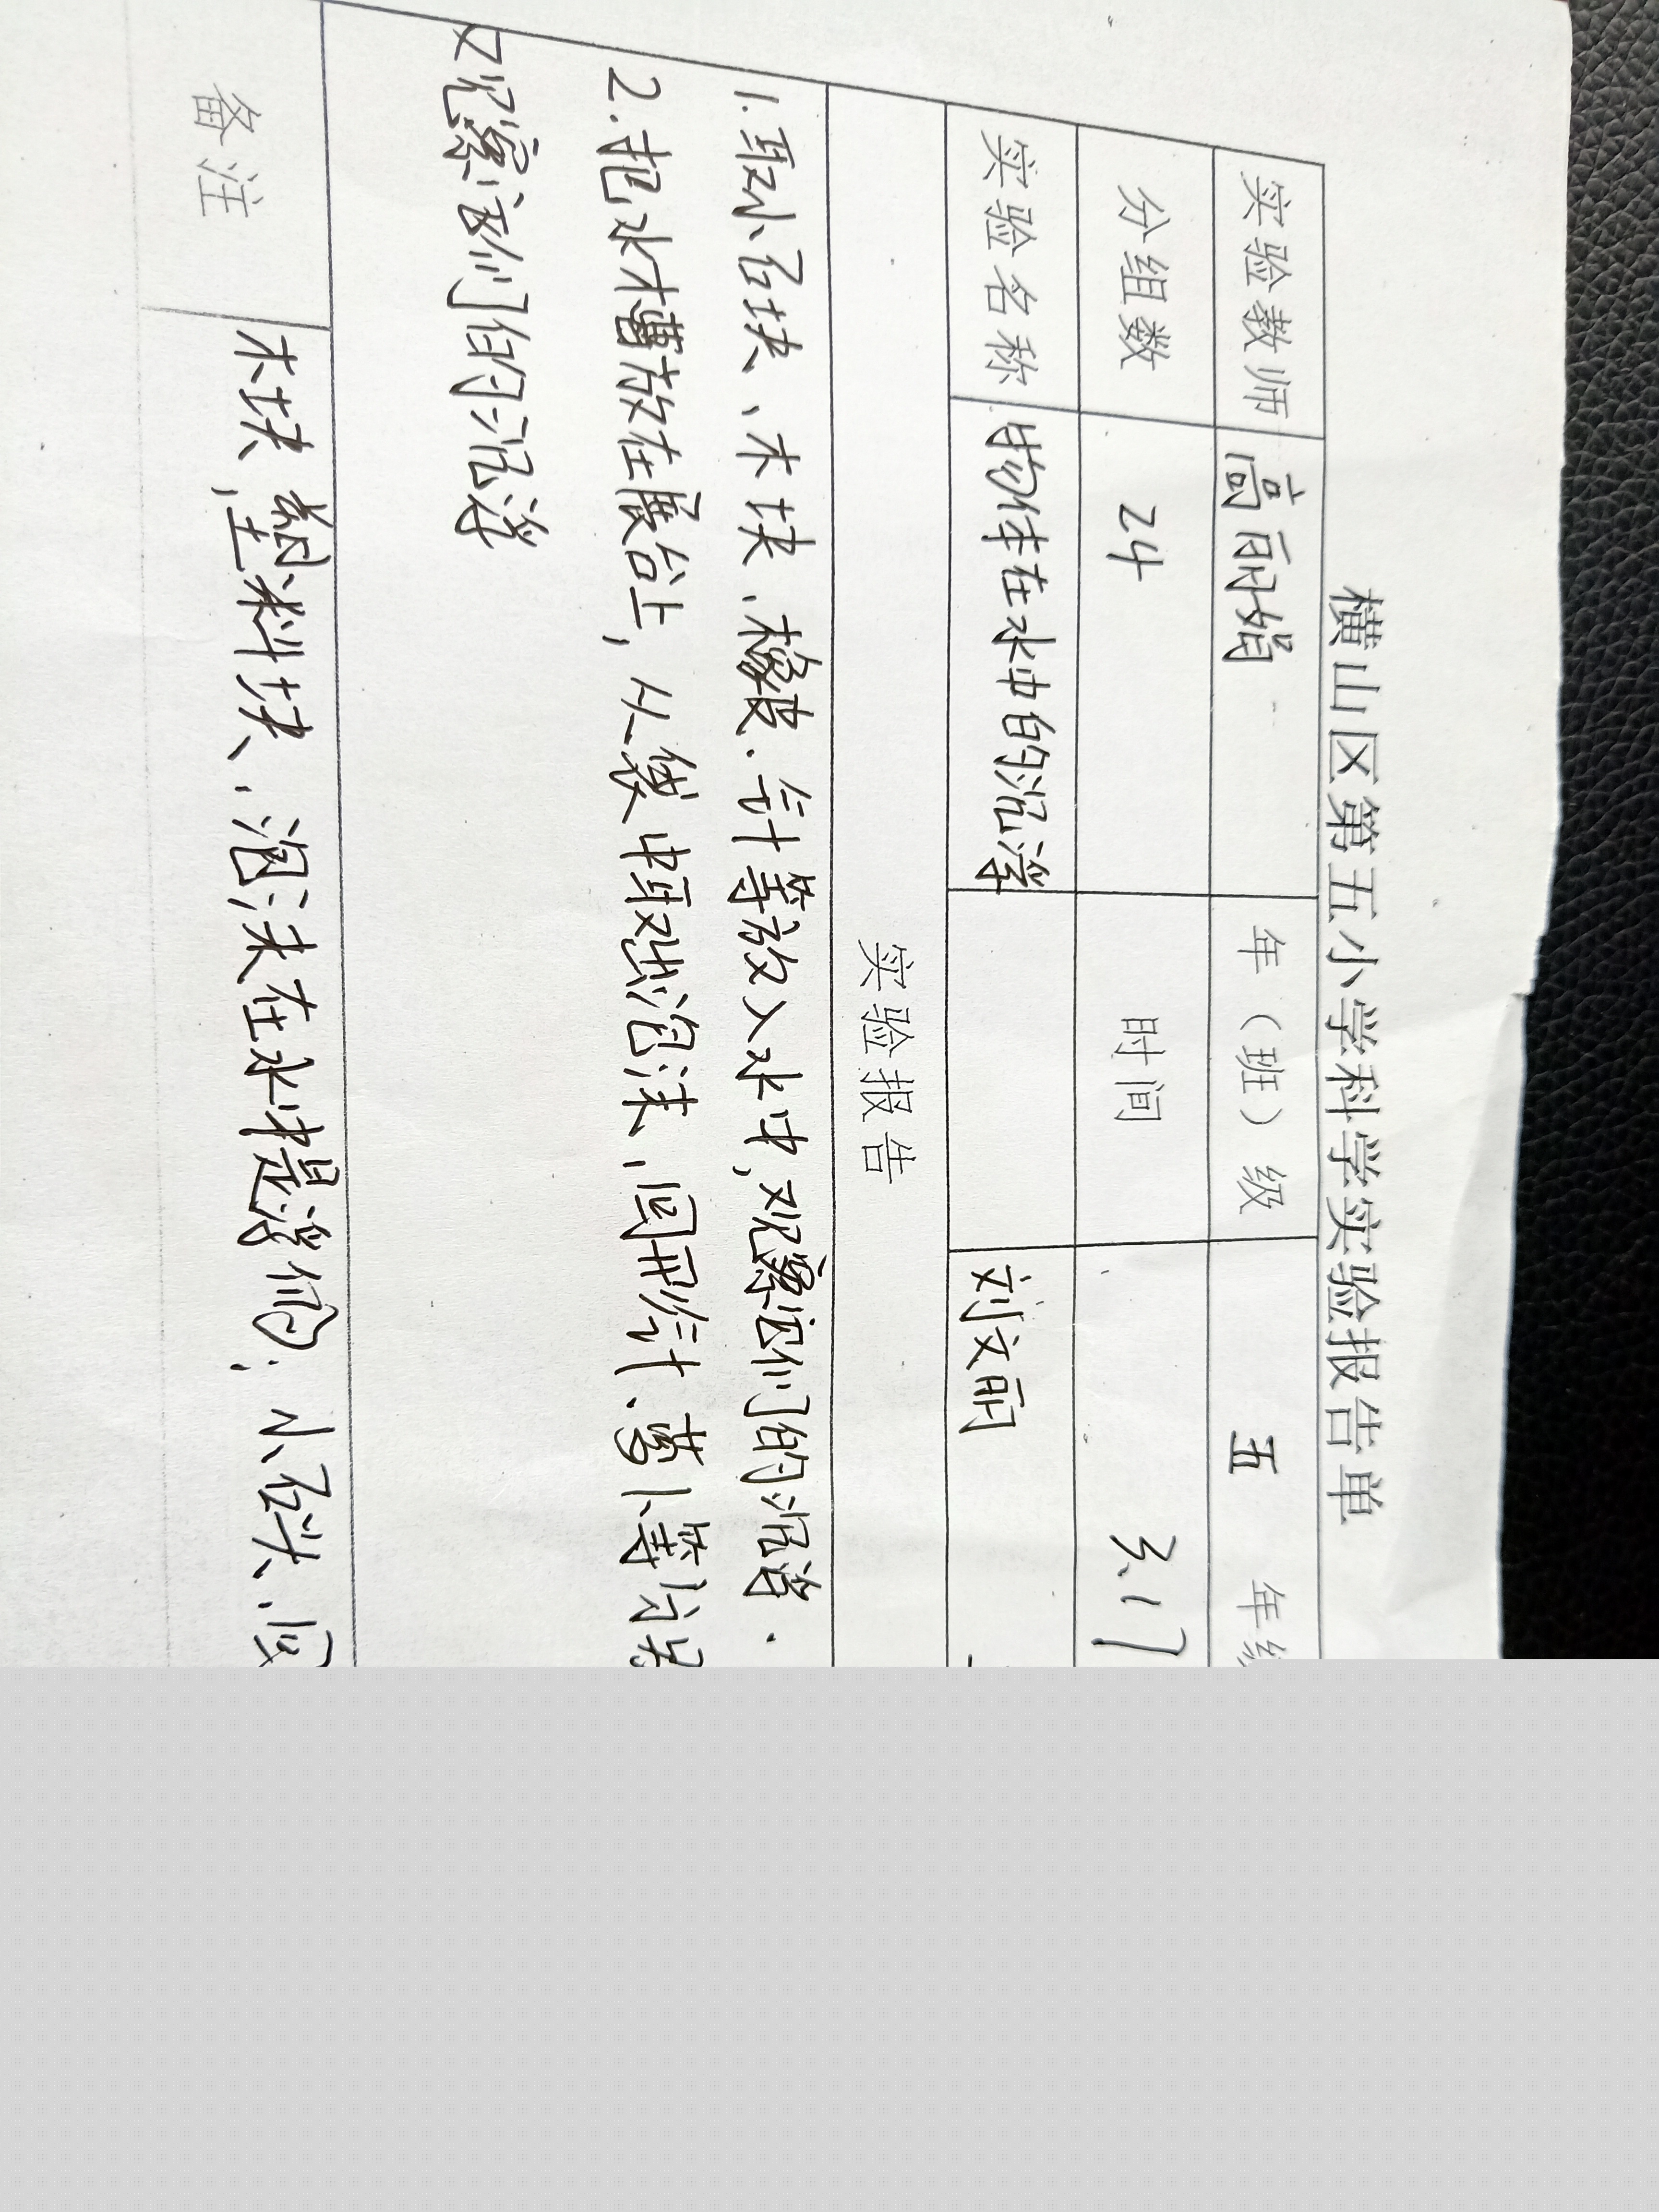 横山区第五小学科学实验报告单
实验教师 高丽娟 年（班）级 五 年级
分组数 24 时间 3.17
实验名称 物体在水中的沉浮 刘文丽
实验报告
1.取小石块、木块、橡皮、针等放入水中,观察它们的沉浮.
2.把水槽放在展台上,从袋中取出泡沫、回形针、萝卜等分别
观察它们的沉浮
备注 木块,塑料块、泡沫在水中是浮的;小石头、回